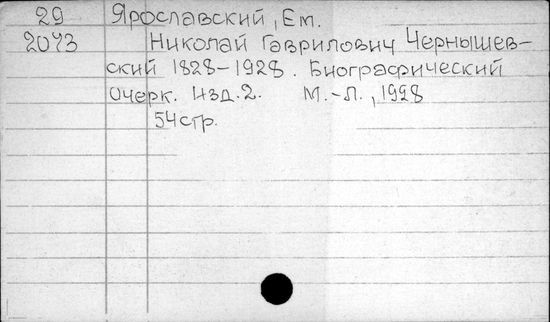 29 Ярославский, Ем.
2073 Николай Гаврилович Чернышев-
ский 1828-1928. Биографический
очерк. Изд. 2. М.-Л., 1928
54стр.